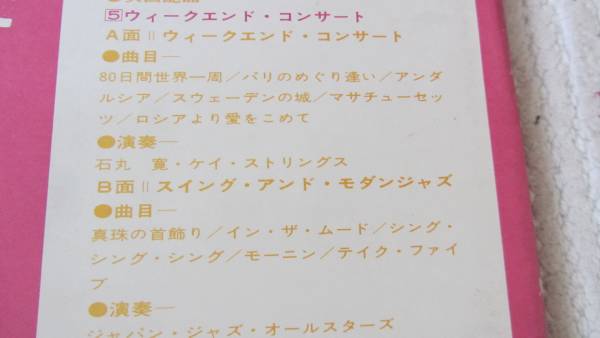 5 ウィークエンド・コンサート
A面＝ウィークエンド・コンサート
●曲目―
80日間世界一周／パリのめぐり逢い／アンダ
ルシア／スウェーデンの城／マサチューセッ
ツ／ロシアより愛をこめて
●演奏―
石丸　寛・ケイ・ストリングス
B面＝スイング・アンド・モダンジャズ
●曲目―
真珠の首飾り／イン・ザ・ムード／シング・
シング・シング／モーニン／テイク・ファイ
ブ
●演奏―
ジャパン・ジャズ・オールスターズ